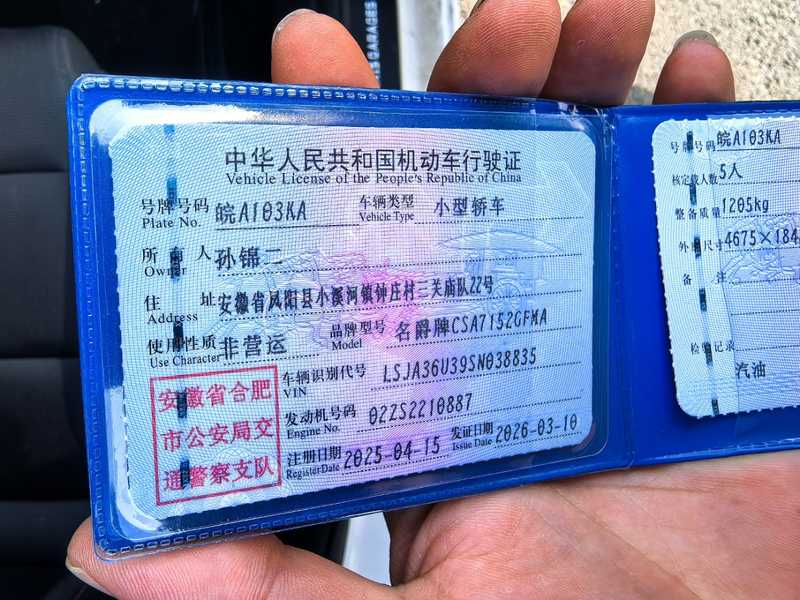 GARAGES
中华人民共和国机动车行驶证
Vehicle License of the People's Republic of China
号牌号码 皖A103KA 车辆类型 小型轿车
Plate No. Vehicle Type
所有人 孙锦二
Owner
住址 安徽省凤阳县小溪河镇钟庄村三关庙队22号
Address
使用性质 非营运 品牌型号 名爵牌CSA7152GFMA
Use Character Model
车辆识别代号 LSJA36U39SN038835
VIN
发动机号码 02ZS2210887
Engine No.
注册日期 2025-04-15 发证日期 2026-03-10
Register Date Issue Date
安徽省合肥
市公安局交
通警察支队
号牌号码 皖A103KA
核定载人数 5人
整备质量 1205kg
外廓尺寸 4675×184
备注
检验记录
汽油